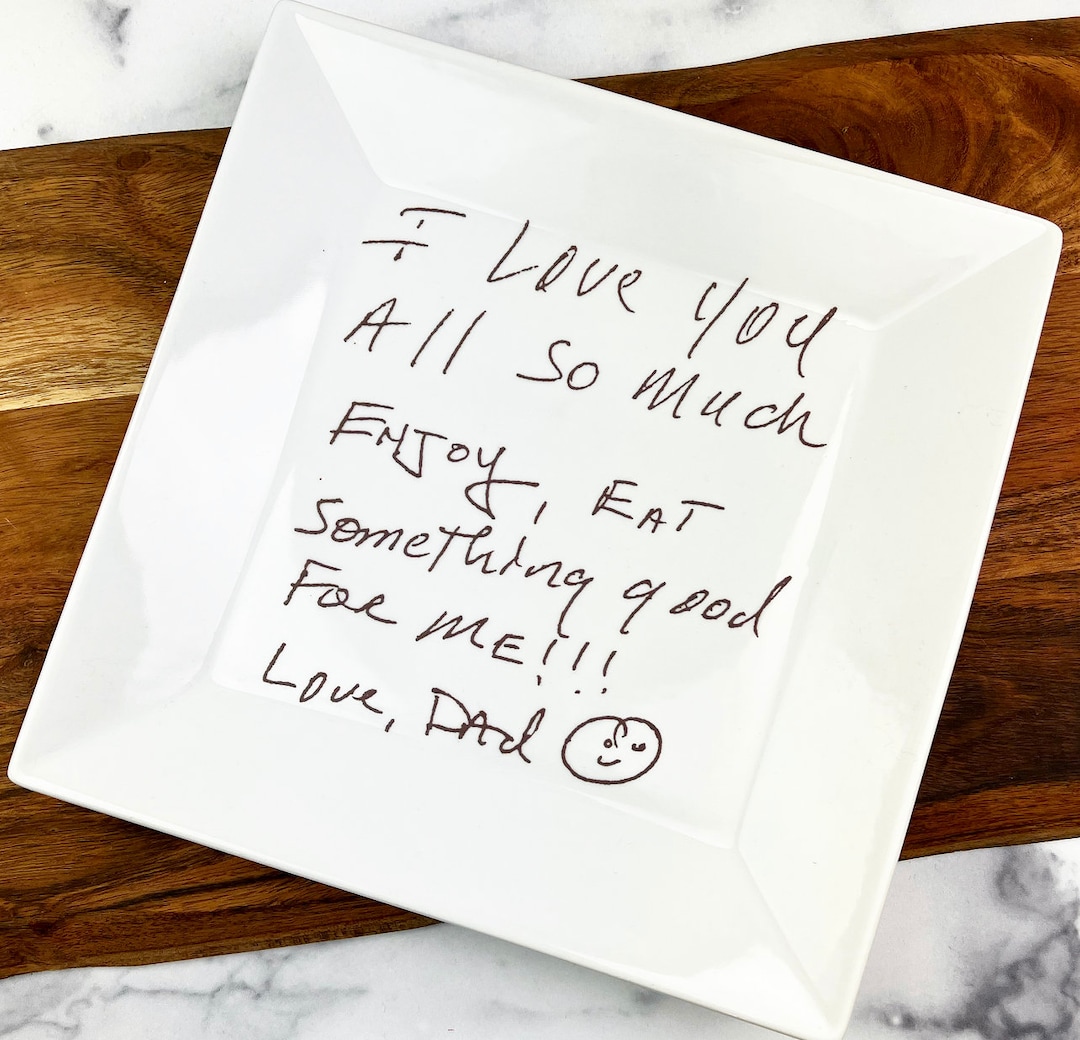 I Love you
All so much
Enjoy, EAT
Something good
For ME!!!
Love, DAd